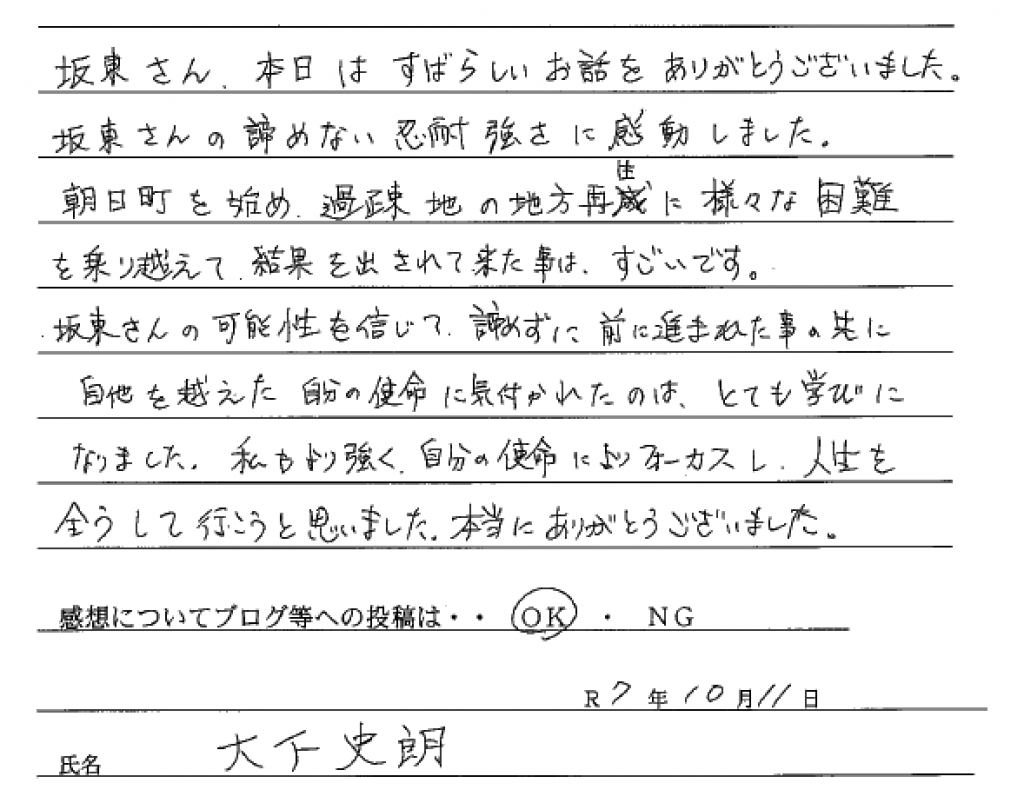 坂東さん、本日は すばらしい お話を ありがとうございました。
坂東さんの 諦めない 忍耐強さに 感動しました。
朝日町を始め、過疎地の地方再生に 様々な 困難
を乗り越えて、結果を出されて来た事は、すごいです。
坂東さんの可能性を信じて、諦めずに 前に進まれた事の先に
自他を越えた 自分の使命に気付かれたのは、とても学びに
なりました。私もより強く、自分の使命によりフォーカスし、人生を
全うして行こうと思いました。本当にありがとうございました。
感想についてブログ等への投稿は・・ OK ・ NG
R7年10月11日
氏名 大下史朗